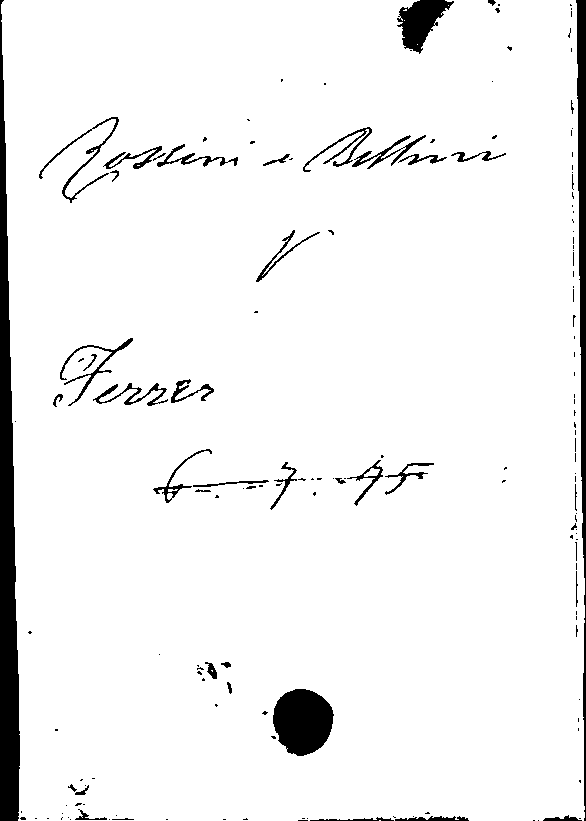 Rossini e Bellini
V
Ferrer
6. 7. 75